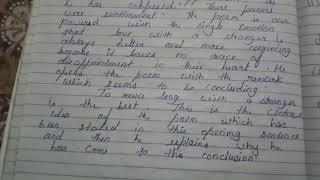 he has expressed. These poems
were sentimental. The poem is our
poured with the single emotion
that love with a stranger is
always better and more conjincing
because it leaves no trace of
disappointment in their heart. He
opens the poem with the remark
which seems to be concluding.
To make long with a stranger
is the best. This is the central
idea of the poem which has
been stated in this opening sentence
and then he explains why he
has come to this conclusion.